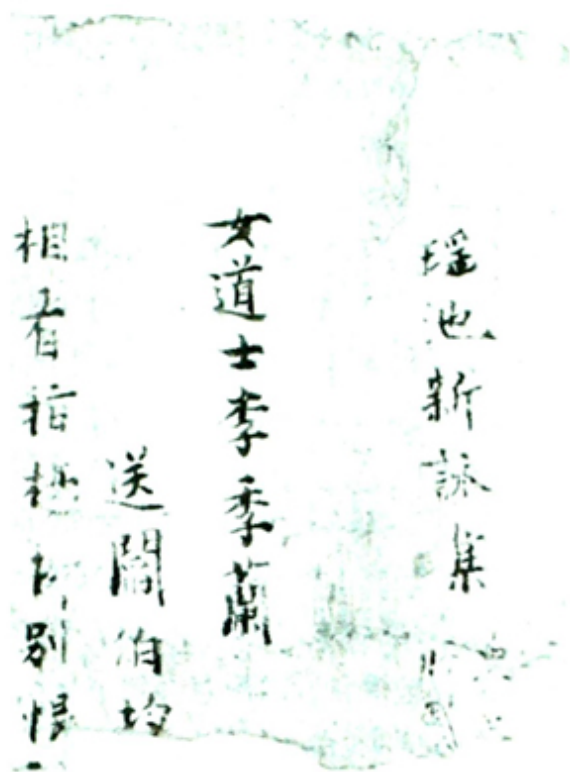 瑶池新詠集
女道士李季蘭
送閻伯均
相看指別恨